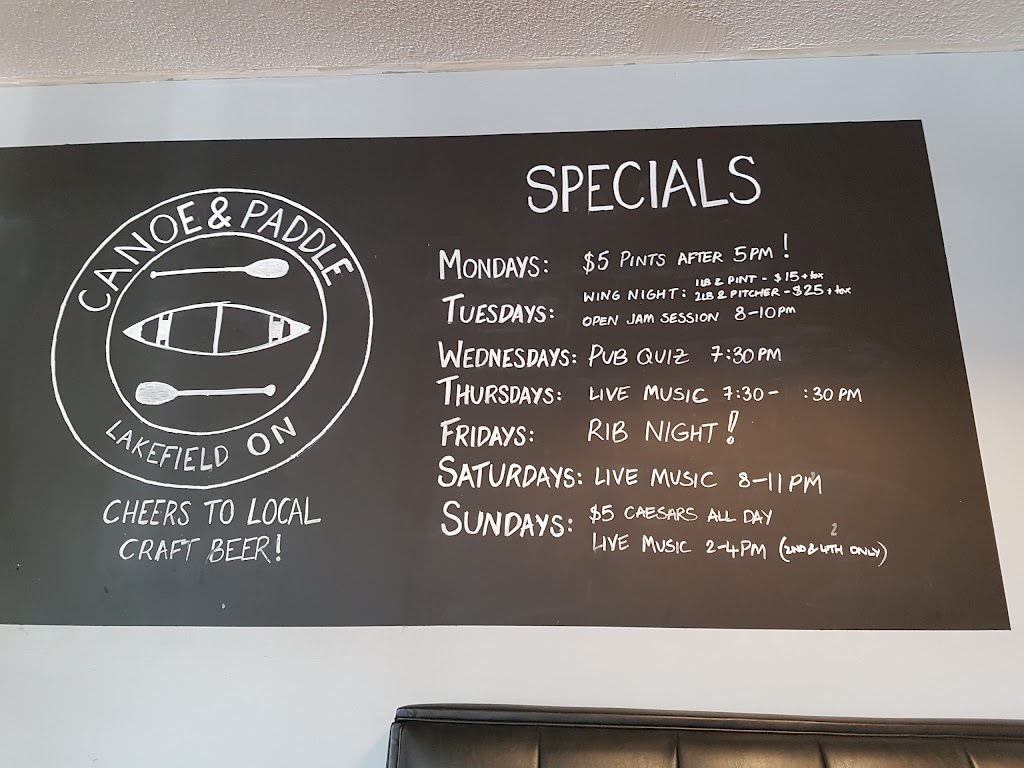 CANOE & PADDLE
LAKEFIELD ON
CHEERS TO LOCAL
CRAFT BEER!
SPECIALS
MONDAYS: $5 PINTS AFTER 5PM!
TUESDAYS: WING NIGHT: 1LB & PINT - $15 + tax
2LB & PITCHER - $25 + tax
OPEN JAM SESSION 8-10PM
WEDNESDAYS: PUB QUIZ 7:30PM
THURSDAYS: LIVE MUSIC 7:30 - :30PM
FRIDAYS: RIB NIGHT!
SATURDAYS: LIVE MUSIC 8-11PM
SUNDAYS: $5 CAESARS ALL DAY
LIVE MUSIC 2-4PM (2ND & 4TH ONLY)